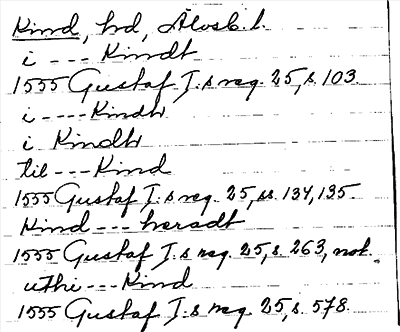 Kind, hd, Älvsb. l.
i --- Kindt
1555 Gustaf I:s reg. 25, s. 103.
i ---- Kindh
i Kindh
til --- Kind
1555 Gustaf I:s reg. 25, ss. 134, 135.
Kind --- heradt
1555 Gustaf I:s reg. 25, s. 263, not.
uthi --- Kind
1555 Gustaf I:s reg. 25, s. 578.